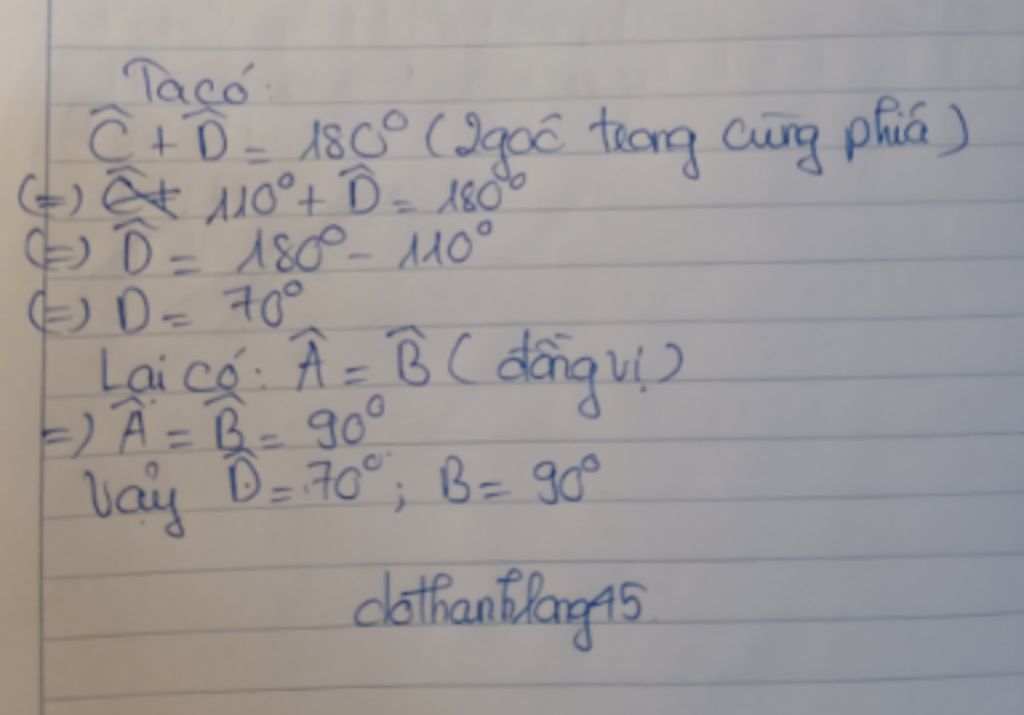 Ta có:
Ĉ + D̂ = 180° (2 góc trong cùng phía)
(=) 110° + D̂ = 180°
(=) D̂ = 180° - 110°
(=) D = 70°
Lại có: Â = B̂ (đồng vị)
=) Â = B̂ = 90°
Vậy D̂ = 70°; B = 90°
dothanhlong45